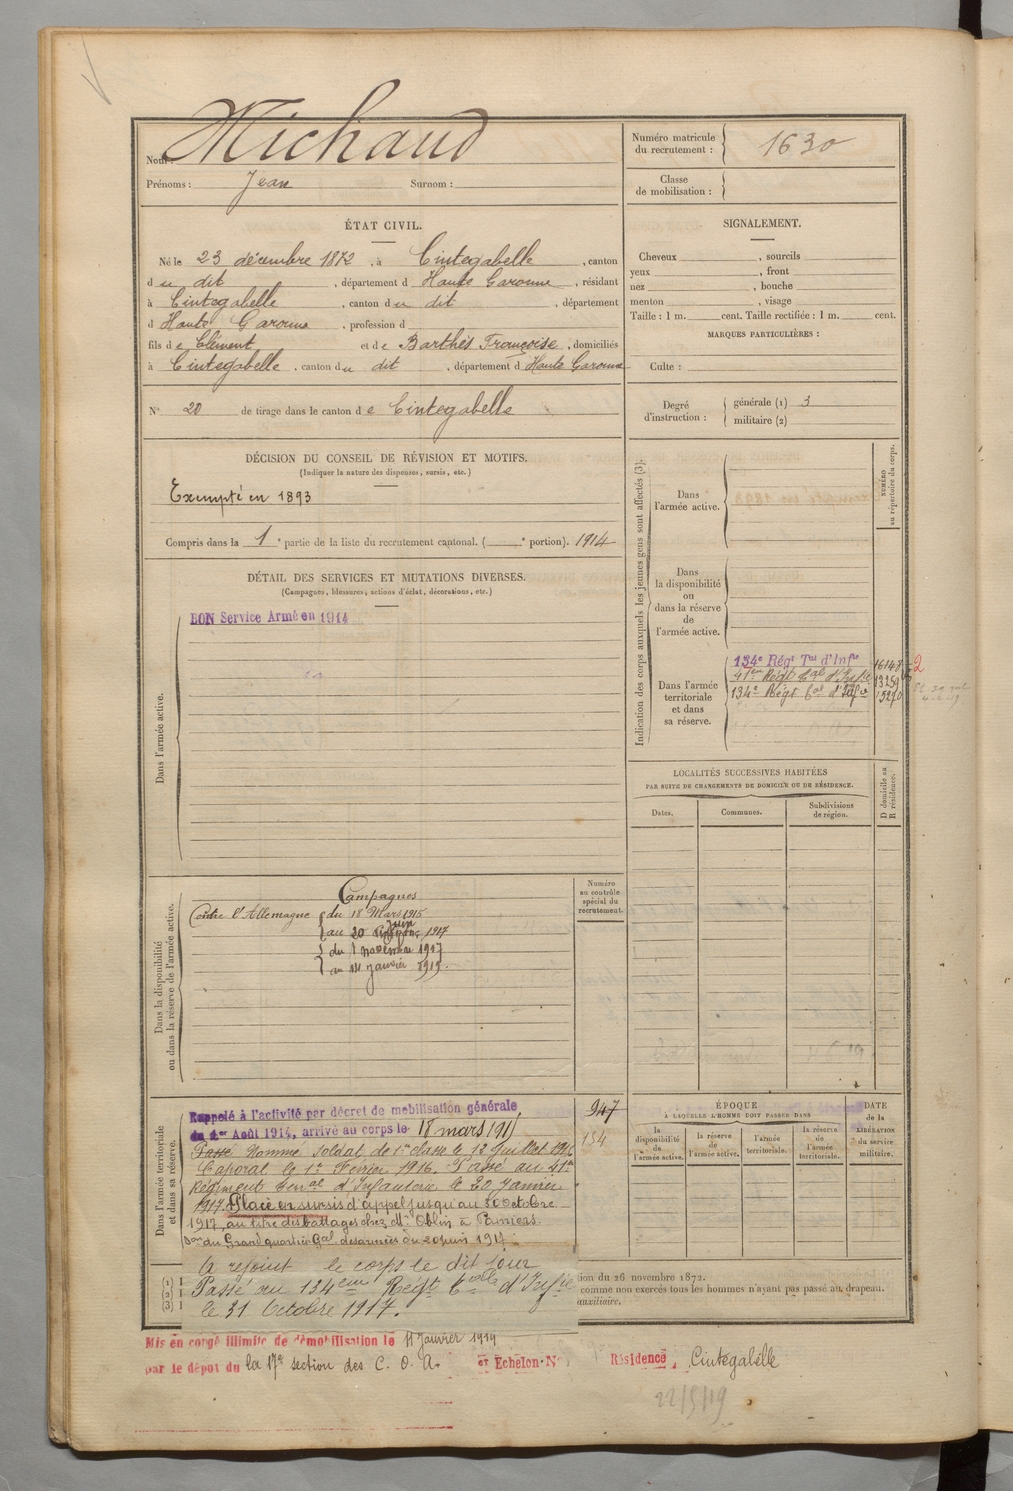 Nom : Michaud
Prénoms : Jean Surnom :
Numéro matricule du recrutement : 1630
Classe de mobilisation :
ÉTAT CIVIL.
Né le 23 décembre 1872, à Cintegabelle, canton
du dit, département d Haute Garonne, résidant
à Cintegabelle, canton du dit, département
d Haute Garonne, profession d
fils de Clément et de Barthès Françoise, domiciliés
à Cintegabelle, canton du dit, département d Haute Garonne
N° 20 de tirage dans le canton de Cintegabelle
SIGNALEMENT.
Cheveux , sourcils
yeux , front
nez , bouche
menton , visage
Taille : 1 m. cent. Taille rectifiée : 1 m. cent.
MARQUES PARTICULIÈRES :
Culte :
Degré d'instruction : générale (1) 3
militaire (2)
DÉCISION DU CONSEIL DE RÉVISION ET MOTIFS.
(Indiquer la nature des dispenses, sursis, etc.)
Exempté en 1893
Compris dans la 1e partie de la liste du recrutement cantonal. ( e portion). 1914
DÉTAIL DES SERVICES ET MUTATIONS DIVERSES.
(Campagnes, blessures, actions d'éclat, décorations, etc.)
Dans l'armée active.
BON Service Armé en 1914
Indication des corps auxquels les jeunes gens sont affectés (3).
NUMÉRO au répertoire du corps.
Dans l'armée active.
Dans la disponibilité ou dans la réserve de l'armée active.
Dans l'armée territoriale et dans sa réserve.
134e Régt Tal d'Infie 16148
41em Régt Tal d'Infie 13259
134e Régt Tal d'Infie 15270
2
LOCALITÉS SUCCESSIVES HABITÉES
PAR SUITE DE CHANGEMENTS DE DOMICILE OU DE RÉSIDENCE.
Dates. Communes. Subdivisions de région. D domicile ou R résidence.
Dans la disponibilité ou dans la réserve de l'armée active.
Numéro au contrôle spécial du recrutement.
Campagnes
Contre l'Allemagne du 18 Mars 1915
au 20 Juin 1917
du 1 novembre 1917
au 11 janvier 1919.
Dans l'armée territoriale et dans sa réserve.
Rappelé à l'activité par décret de mobilisation générale
du 1er Août 1914, arrivé au corps le 18 mars 191
947
134
Passé Nommé soldat de 1re classe le 12 Juillet
Caporal le 1er Février 1916. Passé au 41e
Régiment Terral d'Infanterie le 20 janvier
1917. Placé en sursis d'appel jusqu'au 30 octobre
1917, au titre des battages chez Mr Oblin à Pamiers.
Don du Grand quartier Gal des armées du 20 juin 1917.
A rejoint le corps le dit jour
Passé au 134eme Régt Tralle d'Infrie
le 31 Octobre 1917.
ÉPOQUE
À LAQUELLE L'HOMME DOIT PASSER DANS
la disponibilité de l'armée active. la réserve de l'armée active. l'armée territoriale. la réserve de l'armée territoriale.
DATE de la LIBÉRATION du service militaire.
(1)
(2)
(3)
tion du 26 novembre 1872.
comme non exercés tous les hommes n'ayant pas passé au drapeau.
auxiliaire.
Mis en congé illimité de démobilisation le 11 Janvier 1919
par le dépôt du la 17e section des C. O. A. et Echelon N° Résidence, Cintegabelle
22/5/19